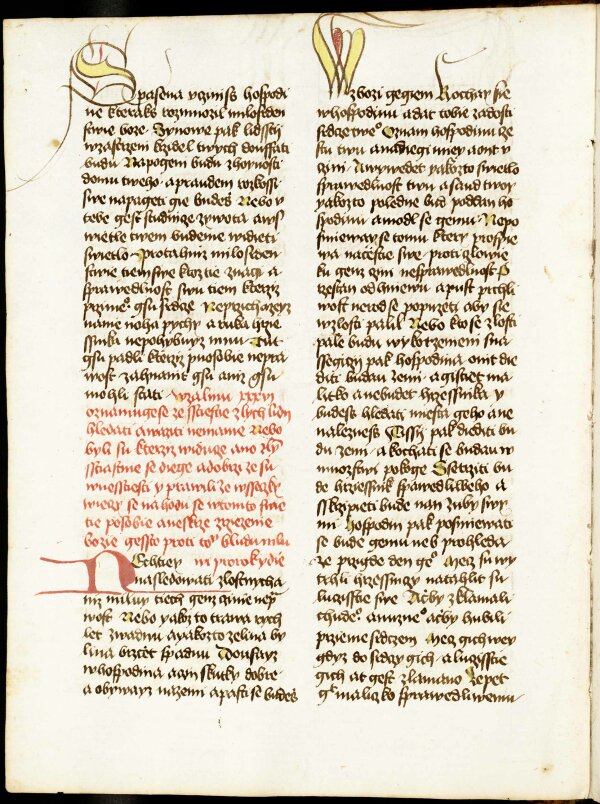 Spasena vczinis hospodi
ne kteraks rozmnozil milosrden
stwie boze Synowe pak lidsstij
w zastieni krzidel twych douffati
budu Napogeni budu z hoynosti
domu tweho a praudem rozkossi
swe napageti gie budes Nebo v
tebe gest studnize zywota a w s
wietle twem budeme widieti
swietlo Protahniz milosrden
stwie tiem ktoz tie znagi a
sprawedlnost swu tiem kterziz
gsu srdcze Neprzichazey
mi noha pychy a ruka hrzie
ssnika nepohybuy mnu Tut
gsu padli kterziz puosobie nepra
wost wyhnani gsu aniz gsu
mohli stati W zalmu xxxvi
oznamuge se ze sstiestie zlych lidi
hledati a wazti nemame Nebo
byli su kterziz widuce ano zly
sstiastnie se diege a dobrzi ze su
w nesstiesti y prawili ze wsseczky
wieczy se nahodu se w tomto swie
tie posobie a ne skrze zrzizenie
bozie gessto proti to bludu mlu
Nechtiey wi prorok y die
nasledowati zlostnych a
niz miluy tiech genz cinie nepra
wost Nebo yakzto trawa rych
le zwadnu a yakozto zelina by
lina brzce spadnu Doufay
w hospodina a czin skutky dobre
a obyway na zemi a pasti se budes
W zbozi gegiem Kochay sie
w hospodinu a dat tobie zadosti
srdcze twe Oznam hospodinu ze
stu twu a nadiegi miey a on v
czini A wywedet yakozto swietlo
sprawedlnost twu a saud twoy
yakozto poledne bud poddan ho
spodinu a modl se gemu Nepo
sniewayt se tomu ktery prospie
wa na cestie swe proti czlowie
ku genz czini nesprawedlnost P
rzestan od hniewu a pust prchli
wost nerod se popuzeti aby sie
w zlosti palil Nebo kto se zlosti
pale budu wykorzenieni sna
ssegiczi pak hospodina oni die
diti budau zemi a gistiet ma
liczko a nebudet hrzessnika y
budess hledati miesta geho a ne
nalezness Tissij pak diediti bu
du zemi a kochati se budau w
mnozstwi pokoge Ssetrziti bu
de hrziessnik sprawedliweho a
sskrzipieti bude nan zuby swy
mi Hospodin pak posmiewati
se bude gemu neb prohleda
ze przigde den geho Mecz su wy
trhli hrziessniczi natahli su
luczisstie swe Aby zklamali
chudeho a nuzneho aby hubili
przieme srdczem Mecz gich wey
gdyz do srdczy gich a luczisstie
gich at gest zlamano Lepet
gest maliczko sprawedliwemu